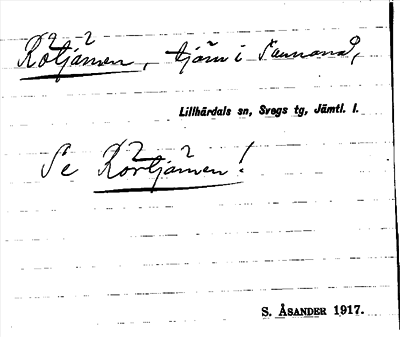 Rötjärnen, tjärn i
Lillhärdals sn, Svegs tg, Jämtl. l.
Se Rörtjärnen!
S. ÅSANDER 1917.